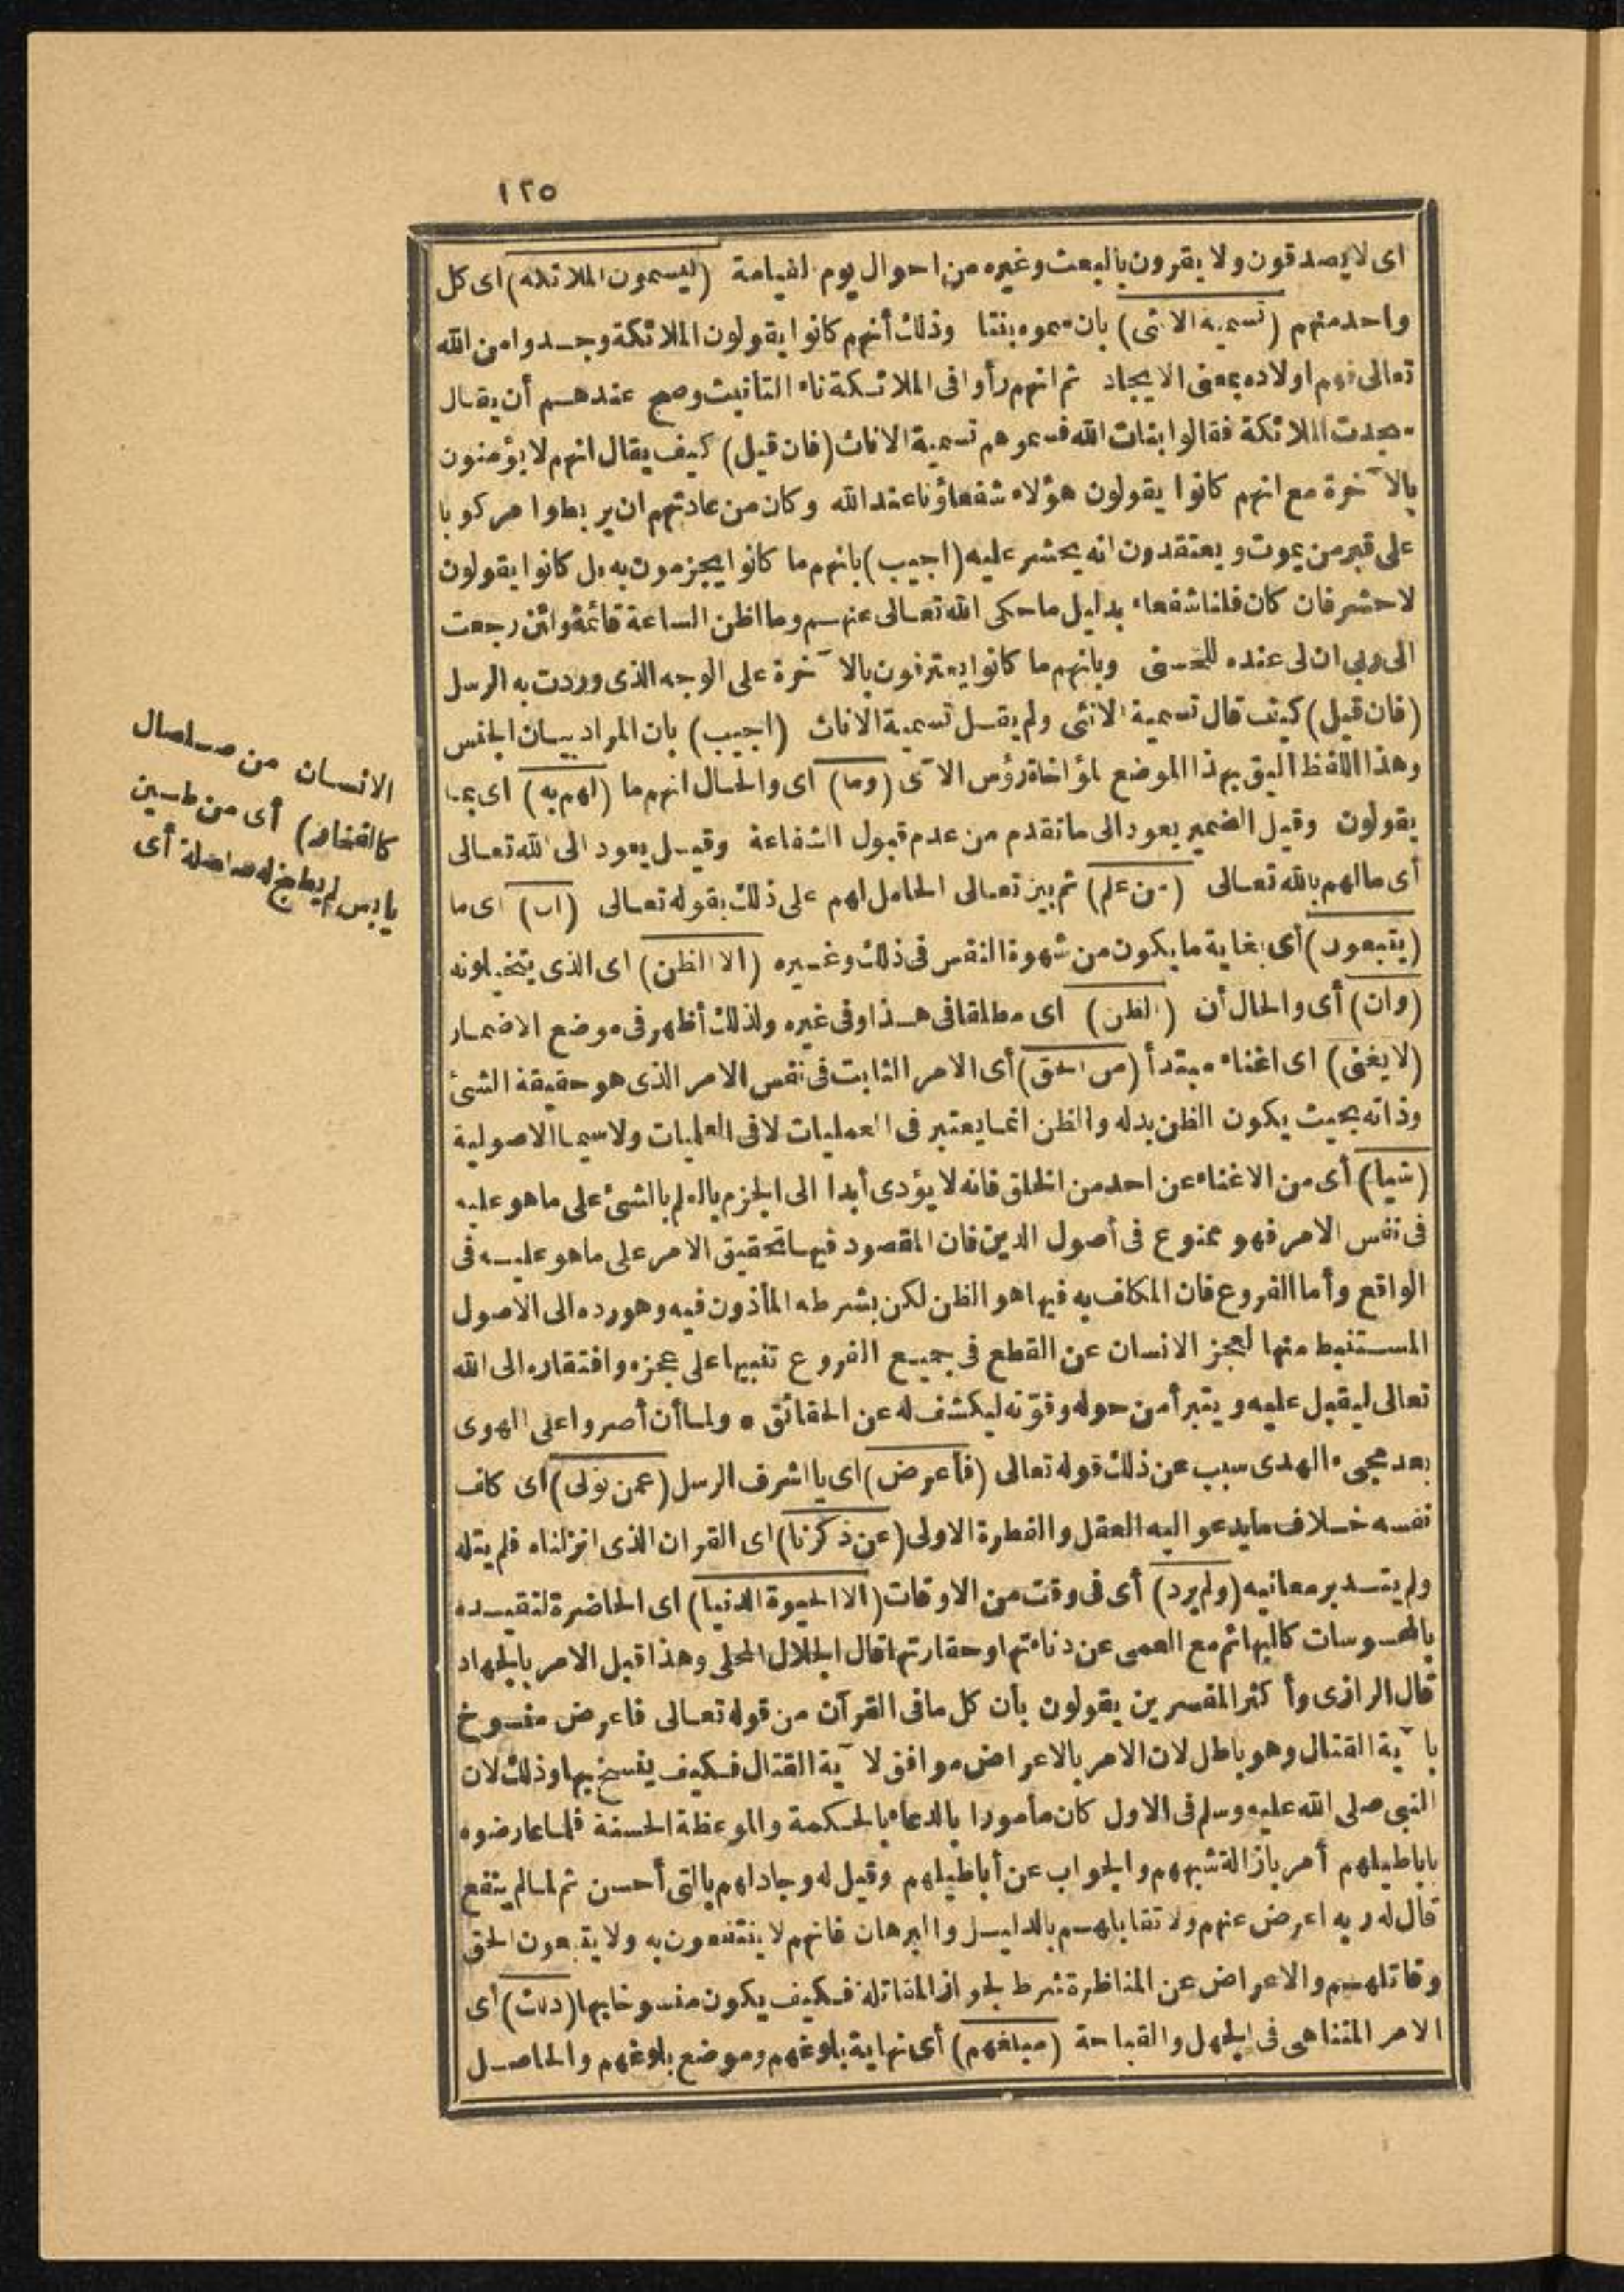 ١٢٥
اى لا يصدقون ولا يقرون بالبعث وغيره من احوال يوم القيامة (ليسمون الملائكة) اى كل
واحد منهم (تسمية الانثى) بان سموه بنتا وذلك أنهم كانوا يقولون الملائكة وجدوا من الله
تعالى فهم اولاده بمعنى الايجاد ثم انهم رأوا فى الملائكة تاء التأنيث وصح عندهم أن يقال
سجدت الملائكة فقالوا بنات الله فسموهم تسمية الاناث (فان قيل) كيف يقال انهم لا يؤمنون
بالآخرة مع انهم كانوا يقولون هؤلاء شفعاؤنا عند الله وكان من عادتهم ان يربطوا مركوبا
على قبر من يموت ويعتقدون انه يحشر عليه (اجيب) بانهم ما كانوا يجزمون به بل كانوا يقولون
لا حشر فان كان فلنا شفعاء بدليل ما حكى الله تعالى عنهم وما اظن الساعة قائمة ولئن رجعت
الى ربى ان لى عنده للحسنى وبانهم ما كانوا يعترفون بالآخرة على الوجه الذى وردت به الرسل
(فان قيل) كيف قال تسمية الانثى ولم يقل تسمية الاناث (اجيب) بان المراد بيان الجنس
وهذا اللفظ اليق بهذا الموضع لمؤاخاة رؤس الآى (وما) اى والحال انهم ما (لهم به) اى بما
يقولون وقيل الضمير يعود الى ما تقدم من عدم قبول الشفاعة وقيل يعود الى الله تعالى
أى ما لهم بالله تعالى (من علم) ثم بين تعالى الحامل لهم على ذلك بقوله تعالى (ان) اى ما
(يتبعون) أى بغاية ما يكون من شهوة النفس فى ذلك وغيره (الا الظن) اى الذى يتخيلونه
(وان) أى والحال أن (الظن) اى مطلقا فى هذا وفى غيره ولذلك أظهر فى موضع الاضمار
(لا يغنى) اى اغناء مبتدأ (من الحق) أى الامر الثابت فى نفس الامر الذى هو حقيقة الشئ
وذاته بحيث يكون الظن بدله والظن انما يعتبر فى العمليات لا فى العلميات ولا سيما الاصولية
(شيأ) أى من الاغناء عن احد من الخلق فانه لا يؤدى أبدا الى الجزم بالعلم بالشئ على ما هو عليه
فى نفس الامر فهو ممنوع فى أصول الدين فان المقصود فيها تحقيق الامر على ما هو عليه فى
الواقع وأما الفروع فان المكلف به فيها هو الظن لكن بشرطه المأذون فيه وهو رده الى الاصول
المستنبط منها لعجز الانسان عن القطع فى جميع الفروع تنبيها على عجزه وافتقاره الى الله
تعالى ليقبل عليه ويتبرأ من حوله وقوته ليكشف له عن الحقائق • ولما أن أصروا على الهوى
بعد مجىء الهدى سبب عن ذلك قوله تعالى (فأعرض) اى يا اشرف الرسل (عمن تولى) اى كلف
نفسه خلاف ما يدعو اليه العقل والفطرة الاولى (عن ذكرنا) اى القران الذى انزلناه فلم يتله
ولم يتدبر معانيه (ولم يرد) أى فى وقت من الاوقات (الا الحيوة الدنيا) اى الحاضرة لتقيده
بالمحسوسات كالبهائم مع العمى عن دناءتها وحقارتها قال الجلال المحلى وهذا قبل الامر بالجهاد
قال الرازى وأكثر المفسرين يقولون بأن كل ما فى القرآن من قوله تعالى فاعرض منسوخ
بآية القتال وهو باطل لان الامر بالاعراض موافق لآية القتال فكيف ينسخ بها وذلك لان
النبى صلى الله عليه وسلم فى الاول كان مأمورا بالدعاء بالحكمة والموعظة الحسنة فلما عارضوه
باباطيلهم أمر بازالة شبههم والجواب عن أباطيلهم وقيل له وجادلهم بالتى أحسن ثم لما لم ينفع
قال له ربه اعرض عنهم ولا تقابلهم بالدليل والبرهان فانهم لا ينتفعون به ولا يتبعون الحق
وقاتلهم والاعراض عن المناظرة شرط لجواز المقاتلة فكيف يكون منسوخا بها (ذلك) أى
الامر المتناهى فى الجهل والقباحة (مبلغهم) أى نهاية بلوغهم وموضع بلوغهم والحاصل
الانسان من صلصال
كالفخار) أى من طين
يابس لم يطبخ له صلصلة أى